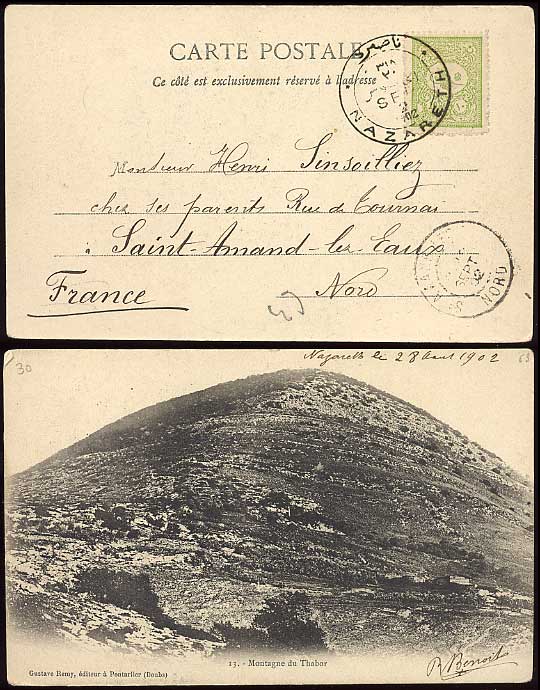 CARTE POSTALE
Ce côté est exclusivement réservé à l'adresse
NAZARETH
Monsieur Henri Sinsoilliez
chez ses parents Rue de Tournai
à Saint-Amand-les-Eaux
France Nord
SEPT
02
NORD
30
Nazareth le 28 Aout 1902
63
13. - Montagne du Thabor
Gustave Remy, éditeur à Pontarlier (Doubs)
R Benoit